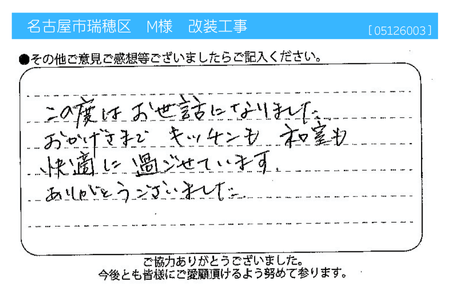 名古屋市瑞穂区 M様 改装工事 [05126003]
●その他ご意見ご感想等ございましたらご記入ください。
この度はお世話になりました。
おかげさまで キッチンも 和室も
快適に過ごせています。
ありがとうございました。
ご協力ありがとうございました。
今後とも皆様にご愛顧頂けるよう努めて参ります。